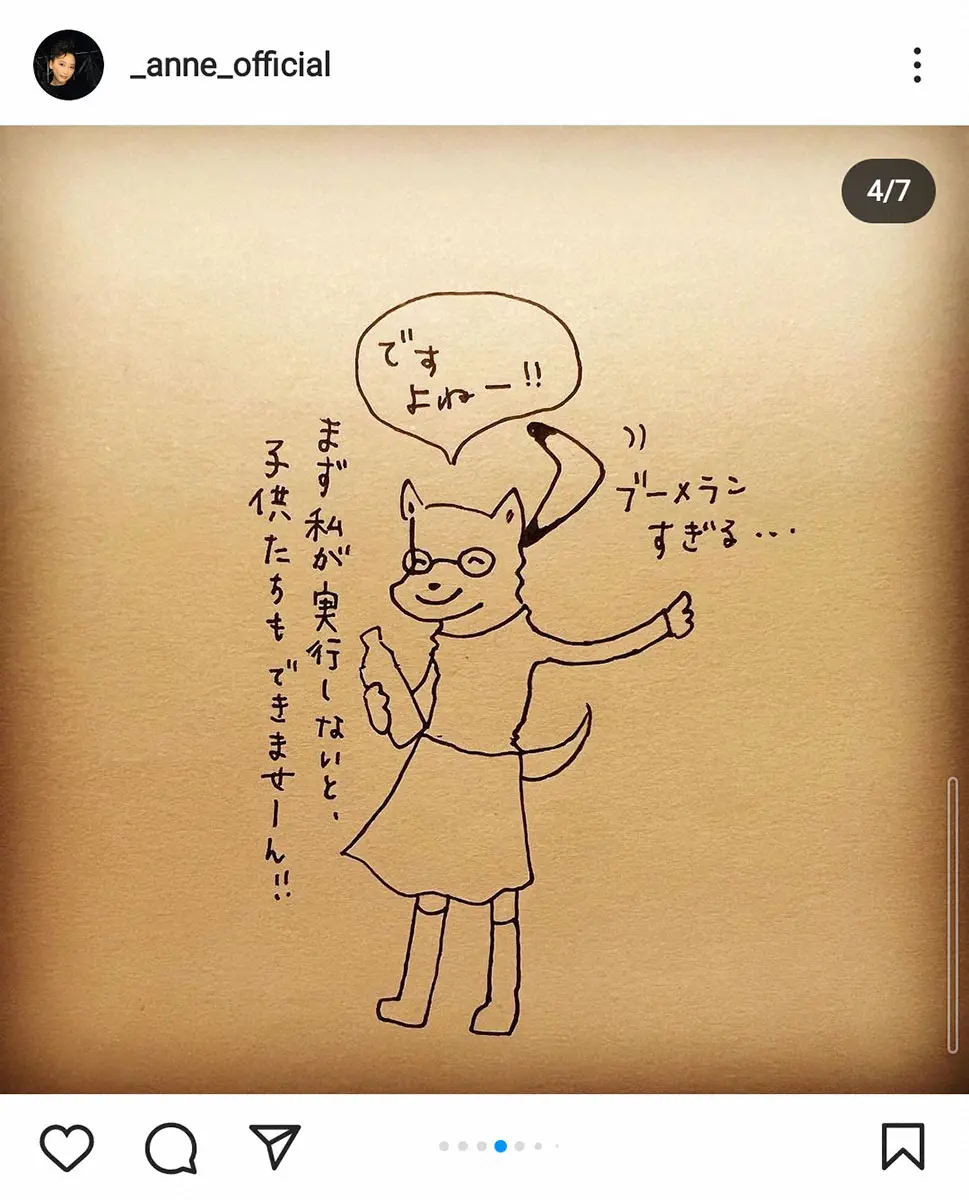 _anne_official
4/7
です
よねー!!
ブーメラン
すぎる…
まず私が実行しないと、
子供たちもできませーん!!